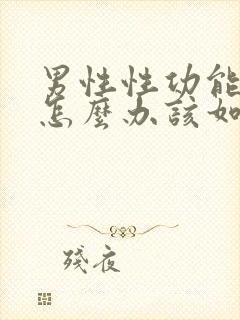 男性性功能
怎麼办該如
殘夜